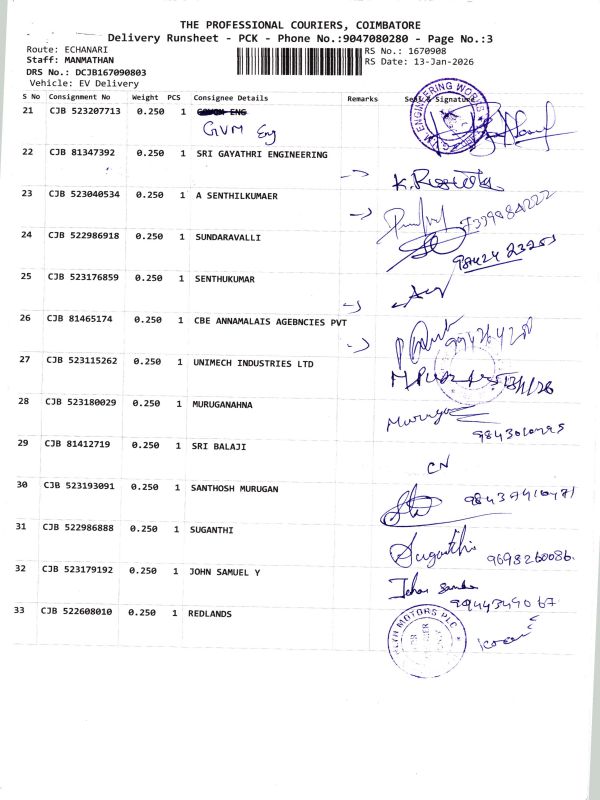 THE PROFESSIONAL COURIERS, COIMBATORE
Delivery Runsheet - PCK - Phone No.:9047080280 - Page No.:3
Route: ECHANARI RS No.: 1670908
Staff: MANMATHAN RS Date: 13-Jan-2026
DRS No.: DCJB167090803
Vehicle: EV Delivery
S No Consignment No Weight PCS Consignee Details Remarks Seal & Signature
21 CJB 523207713 0.250 1
GVM Eng
ENGINEERING WORKS
22 CJB 81347392 0.250 1 SRI GAYATHRI ENGINEERING
23 CJB 523040534 0.250 1 A SENTHILKUMAER
24 CJB 522986918 0.250 1 SUNDARAVALLI
25 CJB 523176859 0.250 1 SENTHUKUMAR
26 CJB 81465174 0.250 1 CBE ANNAMALAIS AGEBNCIES PVT
27 CJB 523115262 0.250 1 UNIMECH INDUSTRIES LTD
13/1/26
28 CJB 523180029 0.250 1 MURUGANAHNA
29 CJB 81412719 0.250 1 SRI BALAJI
CN
30 CJB 523193091 0.250 1 SANTHOSH MURUGAN
31 CJB 522986888 0.250 1 SUGANTHI
Suganthi 9698260086
32 CJB 523179192 0.250 1 JOHN SAMUEL Y
33 CJB 522608010 0.250 1 REDLANDS
MOTORS PLC